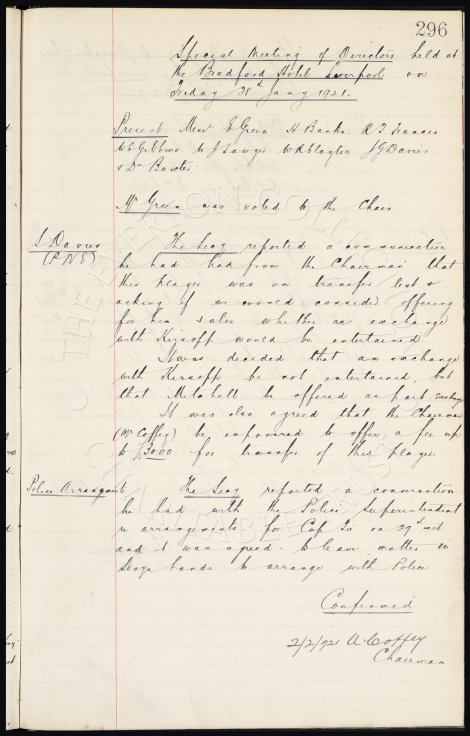 296
Special Meeting of Directors held at
the Bradford Hotel Liverpool on
Friday Jany 1921.
Present. Messrs E Green H Banks. R T Francis
W E Gibbins W J Sawyer W R Clayton J G Davies
& Dr Baxter.
Mr Green was voted to the Chair
S Davies
(P N E)
The Secy reported a communication
he had had from the Chairman that
this player was on transfer list &
asking if we would consider offering
for him & also whether an exchange
with Kirsopp would be entertained
It was decided that an exchange
with Kirsopp be not entertained, but
that Mitchell be offered as part Exchange
It was also agreed that the Chairman
(Mr Coffey) be empowered to offer a fee up
to £3000 for transfer of this player.
Police Arrangmts
The Secy reported a conversation
he had with the Police Superintendent
re arrangements for Cup Tie on 29th inst
and it was agreed to leave matter in
Secys hands to arrange with Police.
Confirmed
2/2/921 A Coffey
Chairman
THE EVERTON COLLECTION